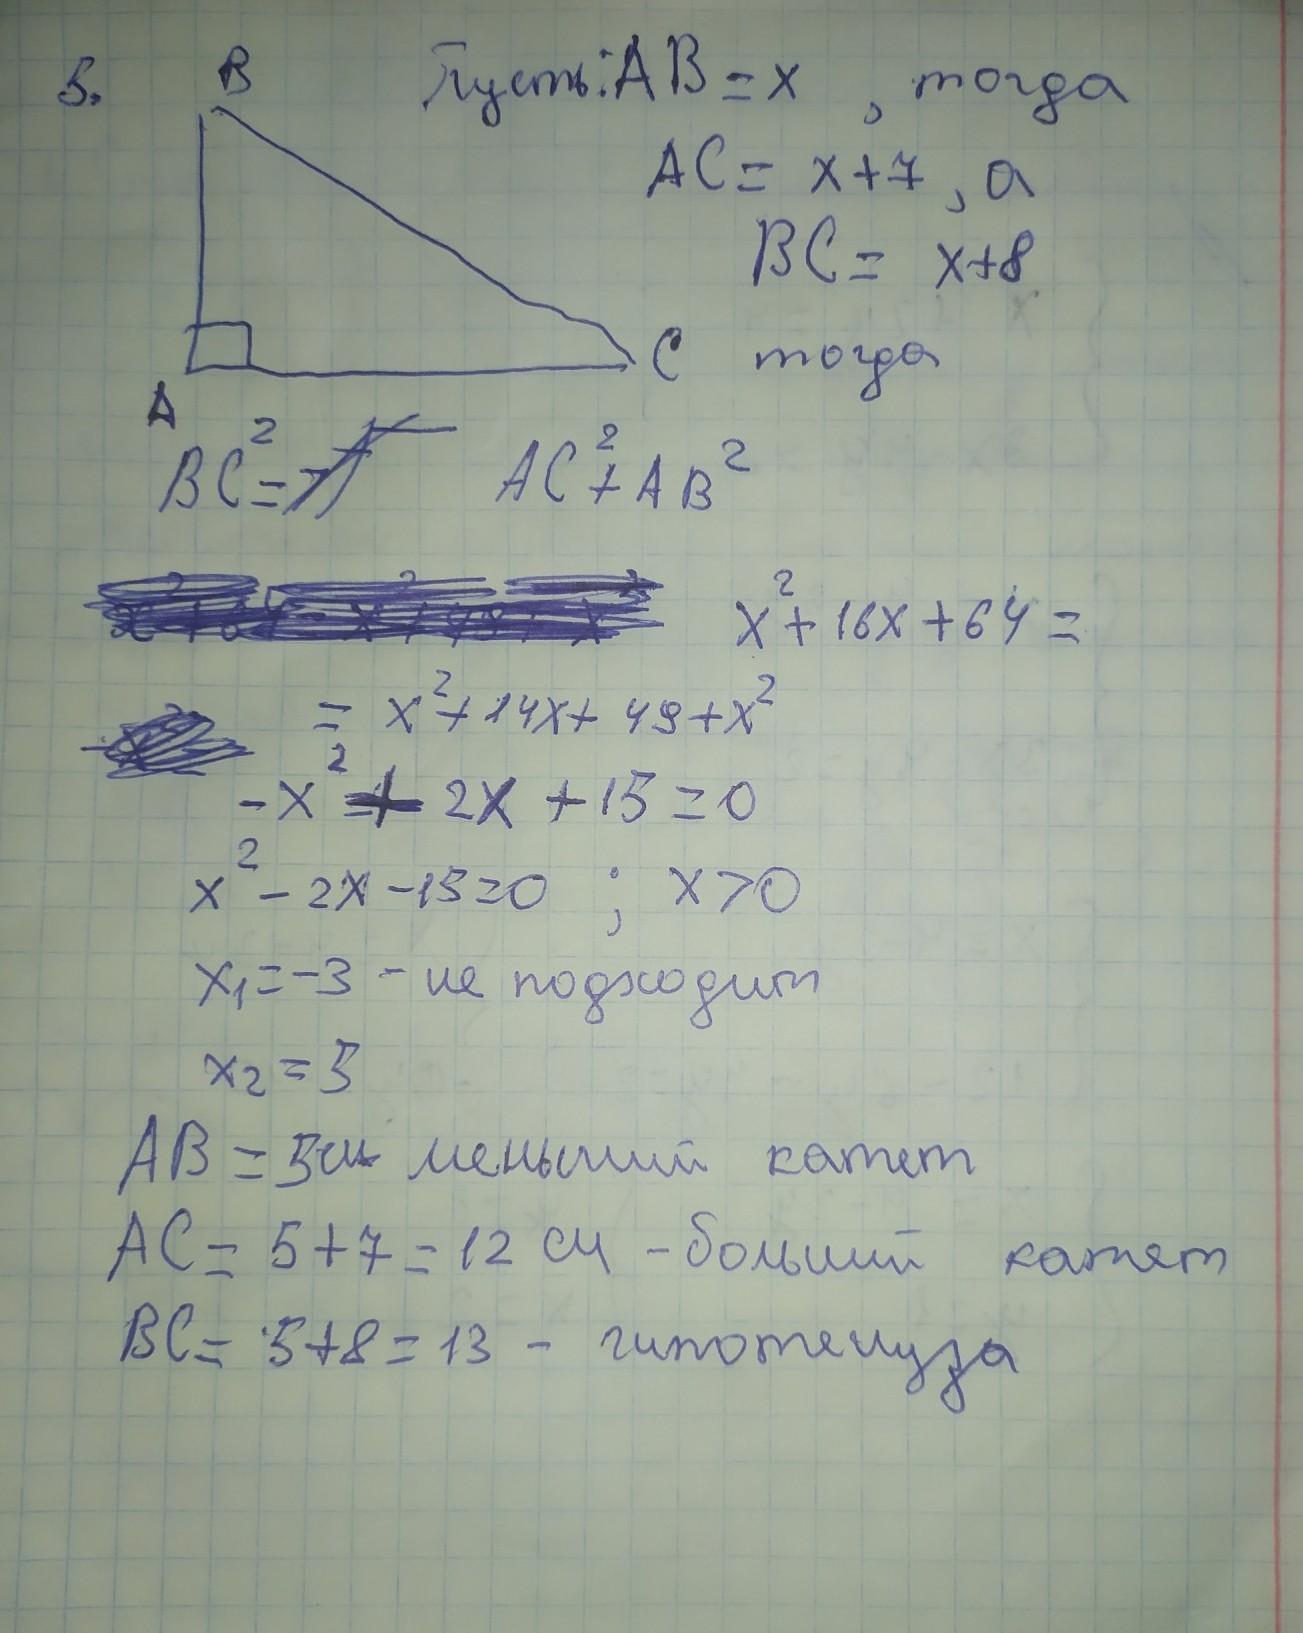 5. B Пусть: AB = x , тогда
AC = x+7 , а
BC = x+8
C тогда
A
BC² = AC² + AB²
x² + 16x + 64 =
= x² + 14x + 49 + x²
-x² + 2x + 15 = 0
x² - 2x - 15 = 0 ; x > 0
x₁ = -3 - не подходит
x₂ = 5
AB = 5см меньший катет
AC = 5+7 = 12 см - больший катет
BC = 5+8 = 13 - гипотенуза